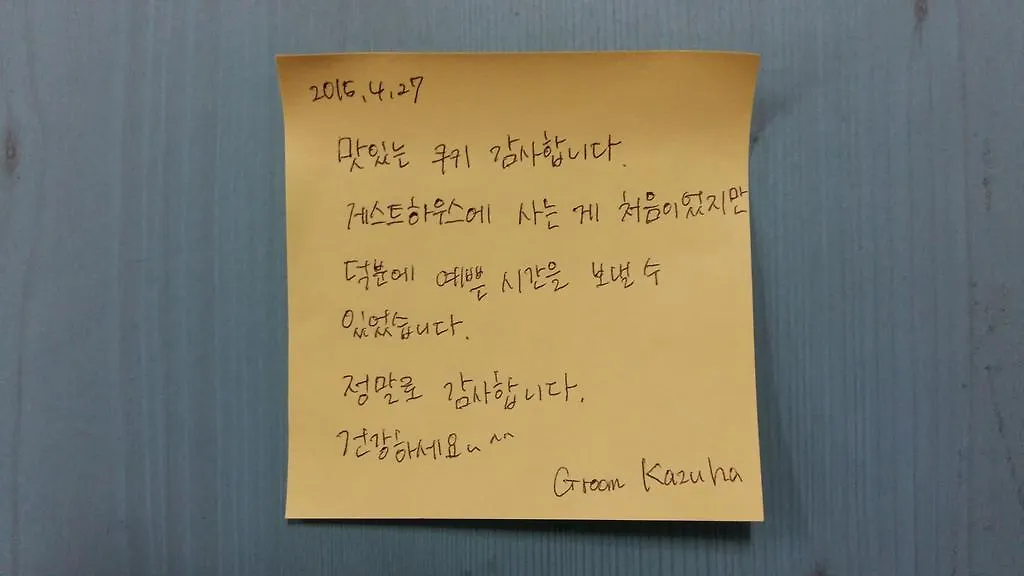 2015.4.27
맛있는 쿠키 감사합니다.
게스트하우스에 사는 게 처음이었지만
덕분에 예쁜 시간을 보낼 수
있었습니다.
정말로 감사합니다.
건강하세요~ ^^
Groom Kazuha